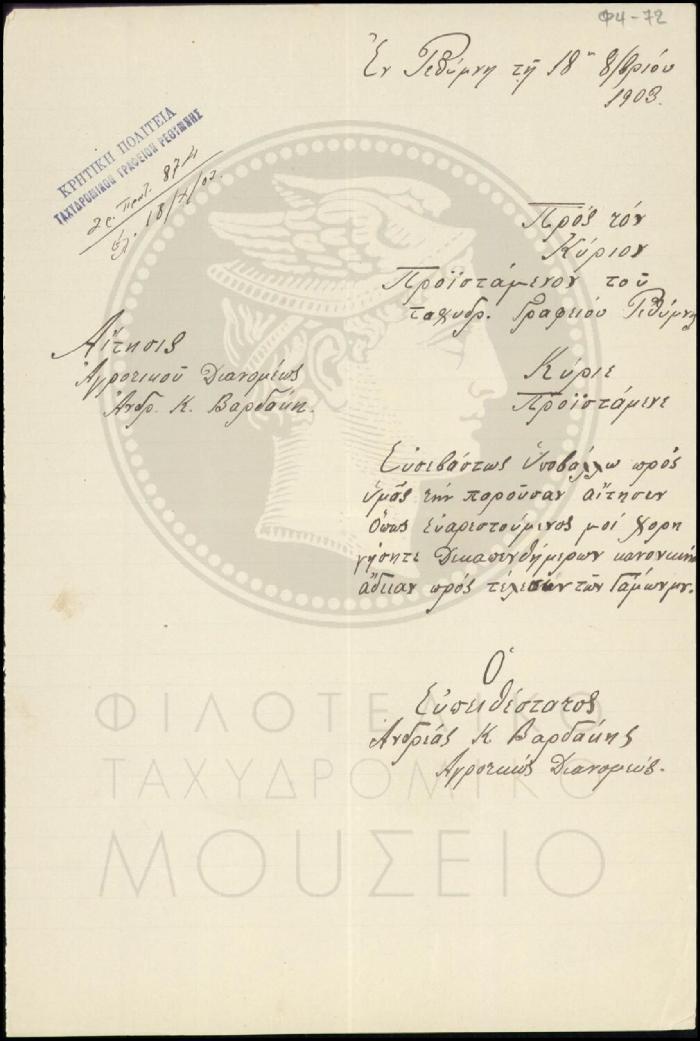 Φ4-72
Ἐν Ρεθύμνῃ τῇ 18ῃ 8/βρίου
1903.
ΚΡΗΤΙΚΗ ΠΟΛΙΤΕΙΑ
ΤΑΧΥΔΡΟΜΙΚΟΝ ΓΡΑΦΕΙΟΝ ΡΕΘΥΜΝΗΣ
Πρός τόν
Κύριον
Προϊστάμενον τοῦ
ταχυδρ. Γραφείου Ρεθύμνης
Αἴτησις
Ἀγροτικοῦ Διανομέως
Ἀνδρ. Κ. Βαρδάκη.
Κύριε
Προϊστάμενε
Εὐσεβάστως ὑποβάλλω πρός
ὑμᾶς τήν παροῦσαν αἴτησεν
ὅπως εὐαρεστούμενος μοί χορη
γήσητε Δεκαπενθήμερων κανονικήν
ἄδειαν πρός τέλεσιν τῶν Γάμων μυ.
Ὁ
Εὐπειθέστατος
Ἀνδρέας Κ Βαρδάκης
Ἀγροτικός Διανομεύς.
ΦΙΛΟΤΕΛΙΚΟ
ΤΑΧΥΔΡΟΜΙΚΟ
ΜΟΥΣΕΙΟ